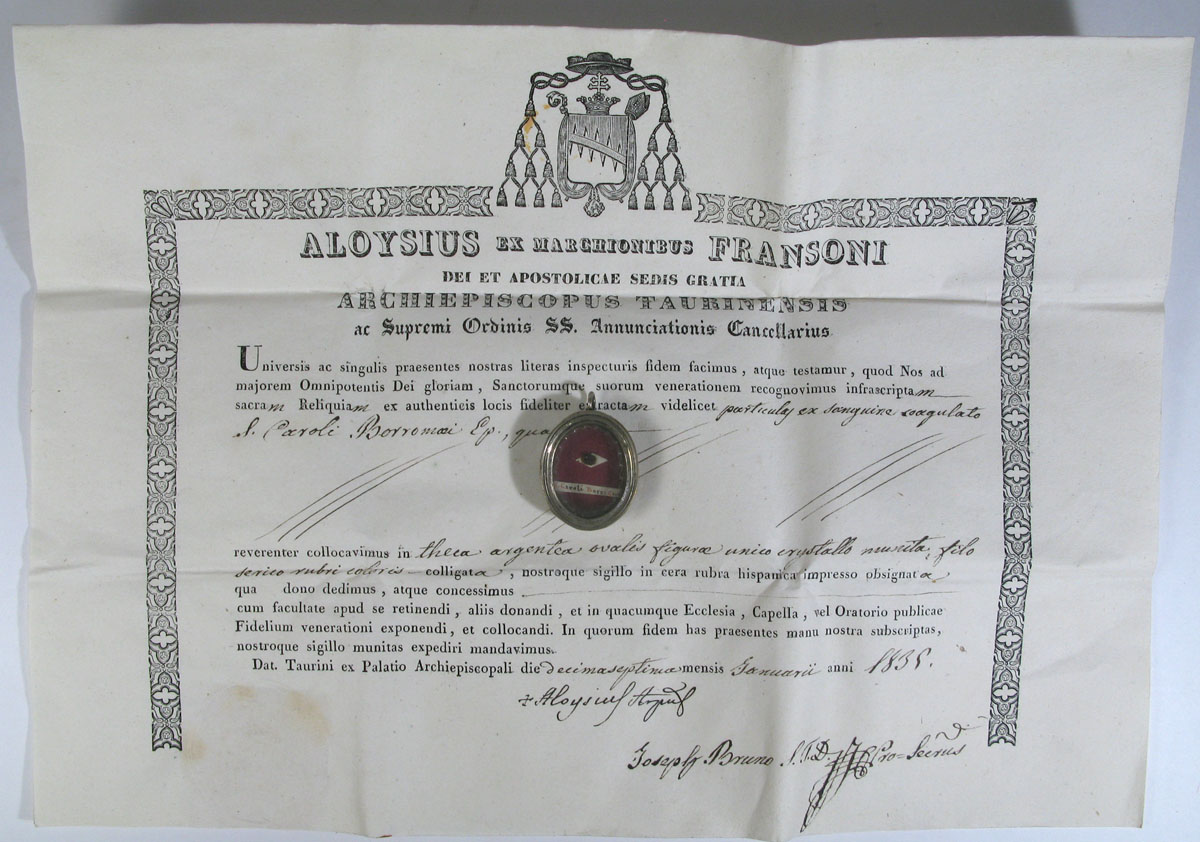 ALOYSIUS EX MARCHIONIBUS FRANSONI
DEI ET APOSTOLICAE SEDIS GRATIA
ARCHIEPISCOPUS TAURINENSIS
ac Supremi Ordinis SS. Annunciationis Cancellarius
Universis ac singulis praesentes nostras literas inspecturis fidem facimus, atque testamur, quod Nos ad
majorem Omnipotentis Dei gloriam, Sanctorumque suorum venerationem recognovimus infrascriptam
sacram Reliquiam ex authenticis locis fideliter extractam videlicet particulas ex sanguine coagulato
S. Caroli Borromaei Ep.,
reverenter collocavimus in theca argentea ovalis figurae unico crystallo munita, filo
serico rubri coloris colligata, nostroque sigillo in cera rubra hispanica impresso obsignata
qua dono dedimus, atque concessimus
cum facultate apud se retinendi, aliis donandi, et in quacumque Ecclesia, Capella, vel Oratorio publicae
Fidelium venerationi exponendi, et collocandi. In quorum fidem has praesentes manu nostra subscriptas,
nostroque sigillo munitas expediri mandavimus.
Dat. Taurini ex Palatio Archiepiscopali die decimaseptima mensis Januarii anni 1835.
+ Aloysius
Joseph Bruno S.T.D. Pro-Secrius